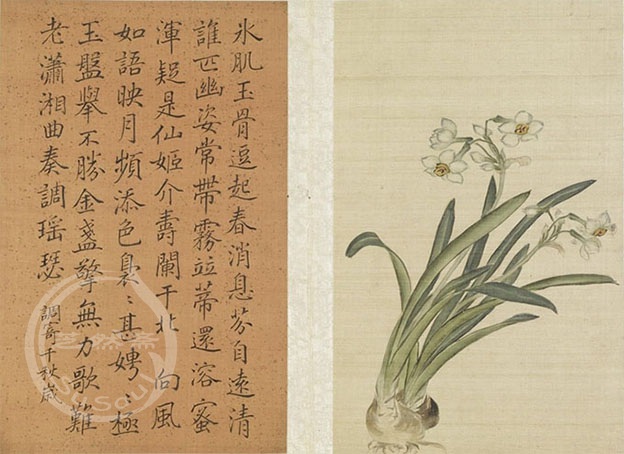 氷肌玉骨逗起春消息芬自遠清
誰匹幽姿常帶霧竝蒂還溶蜜
渾疑是仙姬介壽闌干北 向風
如語映月頻添色裊〻甚娉〻極
玉盤擧不勝金盞擎無力歌難
老瀟湘曲奏調瑶瑟
調寄千秋歲